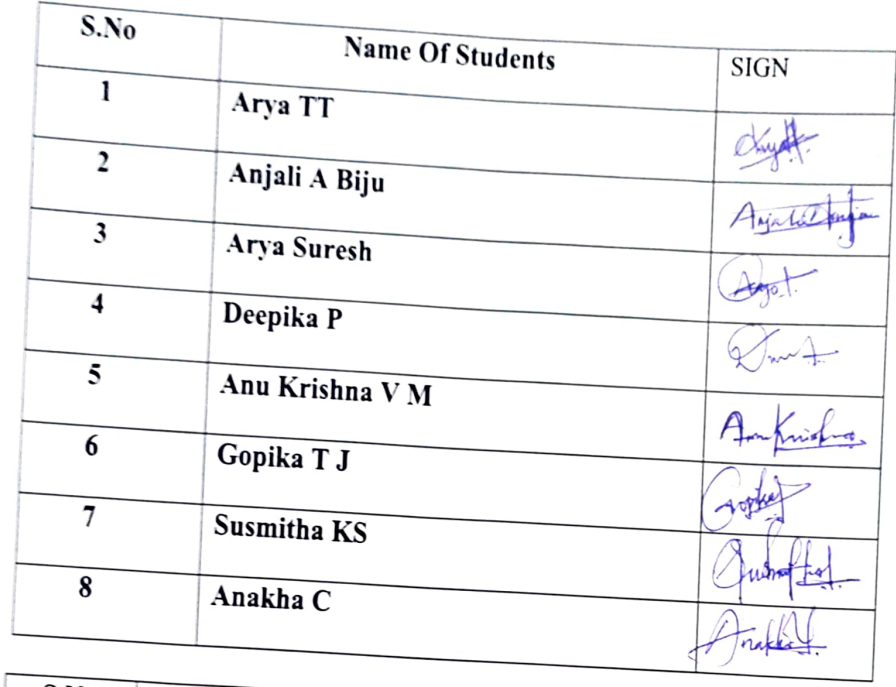 S.No Name Of Students SIGN
1 Arya TT
2 Anjali A Biju
3 Arya Suresh
4 Deepika P
5 Anu Krishna V M Anu Krishna
6 Gopika T J
7 Susmitha KS
8 Anakha C